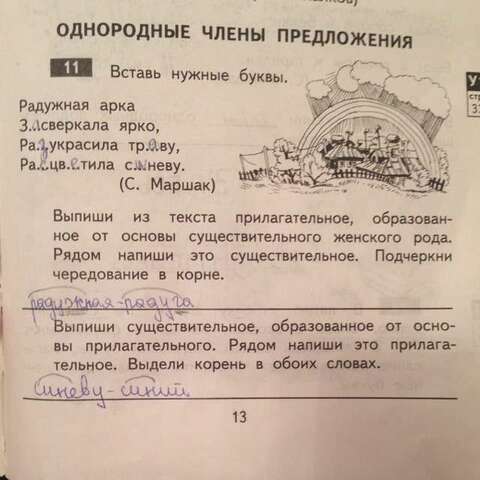 ОДНОРОДНЫЕ ЧЛЕНЫ ПРЕДЛОЖЕНИЯ
11 Вставь нужные буквы.
Радужная арка
Засверкала ярко,
Разукрасила траву,
Расцветила синеву.
(С. Маршак)
Выпиши из текста прилагательное, образован-
ное от основы существительного женского рода.
Рядом напиши это существительное. Подчеркни
чередование в корне.
радужная-радуга
Выпиши существительное, образованное от осно-
вы прилагательного. Рядом напиши это прилага-
тельное. Выдели корень в обоих словах.
синеву-синий
13